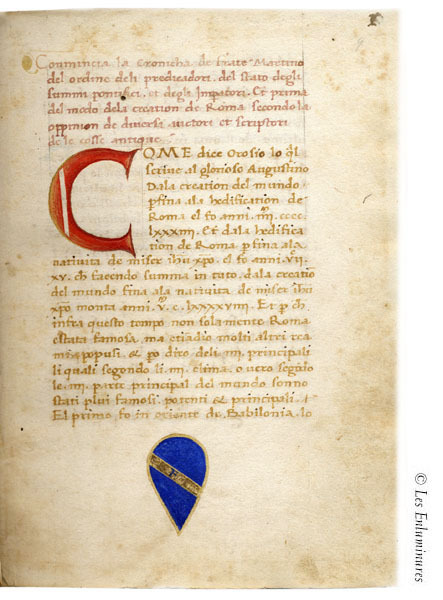 Comincia la Cronicha de frate Martino
del ordine deli predicadori. del stato degli
summi pontifici. et degli Impatori. Et prima
del modo dela creation de Roma secondo la
oppinion de diversi auctori et scriptori
de le cosse antique.
COME dice Orosio lo ql
scrive al glorioso Augustino
Dala creation del mundo
pfina ala hedification de
Roma el fo anni. IIII. cccc
lxxxiiii. Et dala hedifica
tion de Roma pfina ala
nativita de miser ihu xpo. el fo anni. vii.
xv. ch facendo summa in tuto. dala creatio
del mundo fina ala nativita de miser ihu
xpo monta anni. V. c. lxxxxviiii. Et p ch
infra questo tempo non solamente Roma
estata famosa. ma etiadio molti altri rea
mi popusi. & po dire deli. iiii. principali
li quali segondo li. iiii. clima. o vero segudo
le. iiii. parte principal del mundo sonno
stati plui famosi. potenti & principali.
El primo fo in oriente de Babilonia. lo
© Les Enluminures